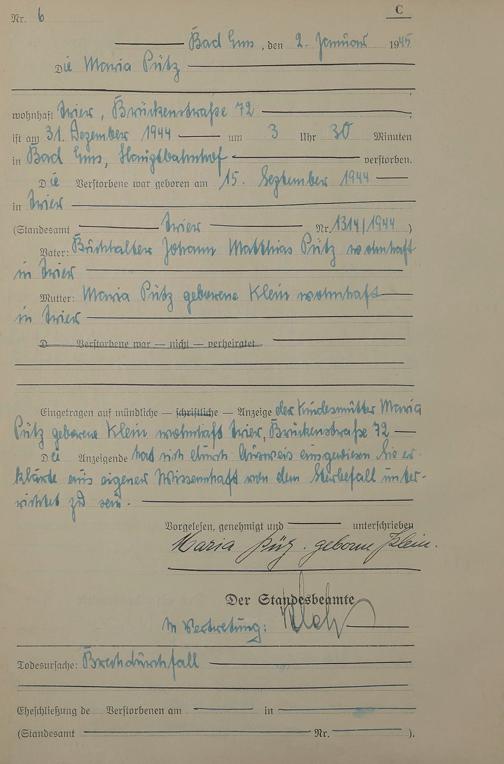 Nr. 6
C
Bad Ems, den 2. Januar 1945
Die Maria Pütz
wohnhaft Trier, Brückenstraße 72
ist am 31. Dezember 1944 um 3 Uhr 30 Minuten
in Bad Ems, Hauptbahnhof verstorben.
Die Verstorbene war geboren am 15. September 1944
in Trier
(Standesamt Trier Nr. 1314/1944)
Vater: Buchhalter Johann Matthias Pütz wohnhaft
in Trier
Mutter: Maria Pütz geborene Klein wohnhaft
in Trier
D Verstorbene war — nicht — verheiratet
Eingetragen auf mündliche — schriftliche — Anzeige der Kindesmutter Maria
Pütz geborene Klein wohnhaft Trier, Brückenstraße 72
Die Anzeigende hat sich durch Ausweis ausgewiesen. Sie er-
klärte aus eigener Wissenschaft von dem Sterbefall unter-
richtet zu sein.
Vorgelesen, genehmigt und unterschrieben
Maria Pütz. geborene Klein.
Der Standesbeamte
In Vertretung:
Todesursache: Brechdurchfall
Eheschließung de Verstorbenen am in
(Standesamt Nr. ).